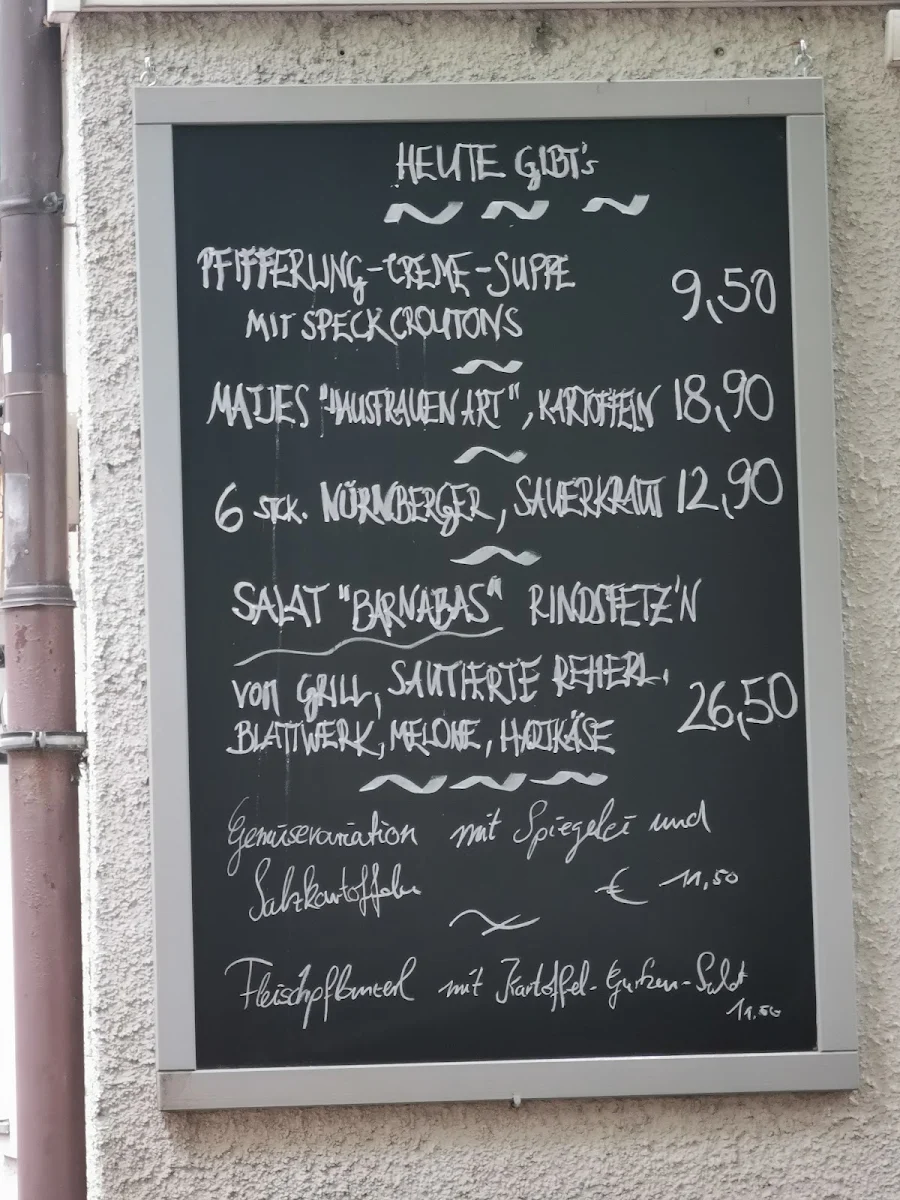 HEUTE GIBT's
PFIFFERLING-CREME-SUPPE
MIT SPECKCROUTONS 9,50
MATJES "HAUSFRAUEN ART", KARTOFFELN 18,90
6 STCK. NÜRNBERGER, SAUERKRAUT 12,90
SALAT "BARNABAS" RINDSFETZ'N
VOM GRILL, SAUTIERTE REHERL,
BLATTWERK, MELONE, HARTKÄSE 26,50
Gemüsevariation mit Spiegelei und
Salzkartoffeln € 11,50
Fleischpflanzerl mit Kartoffel-Gurken-Salat
11,50